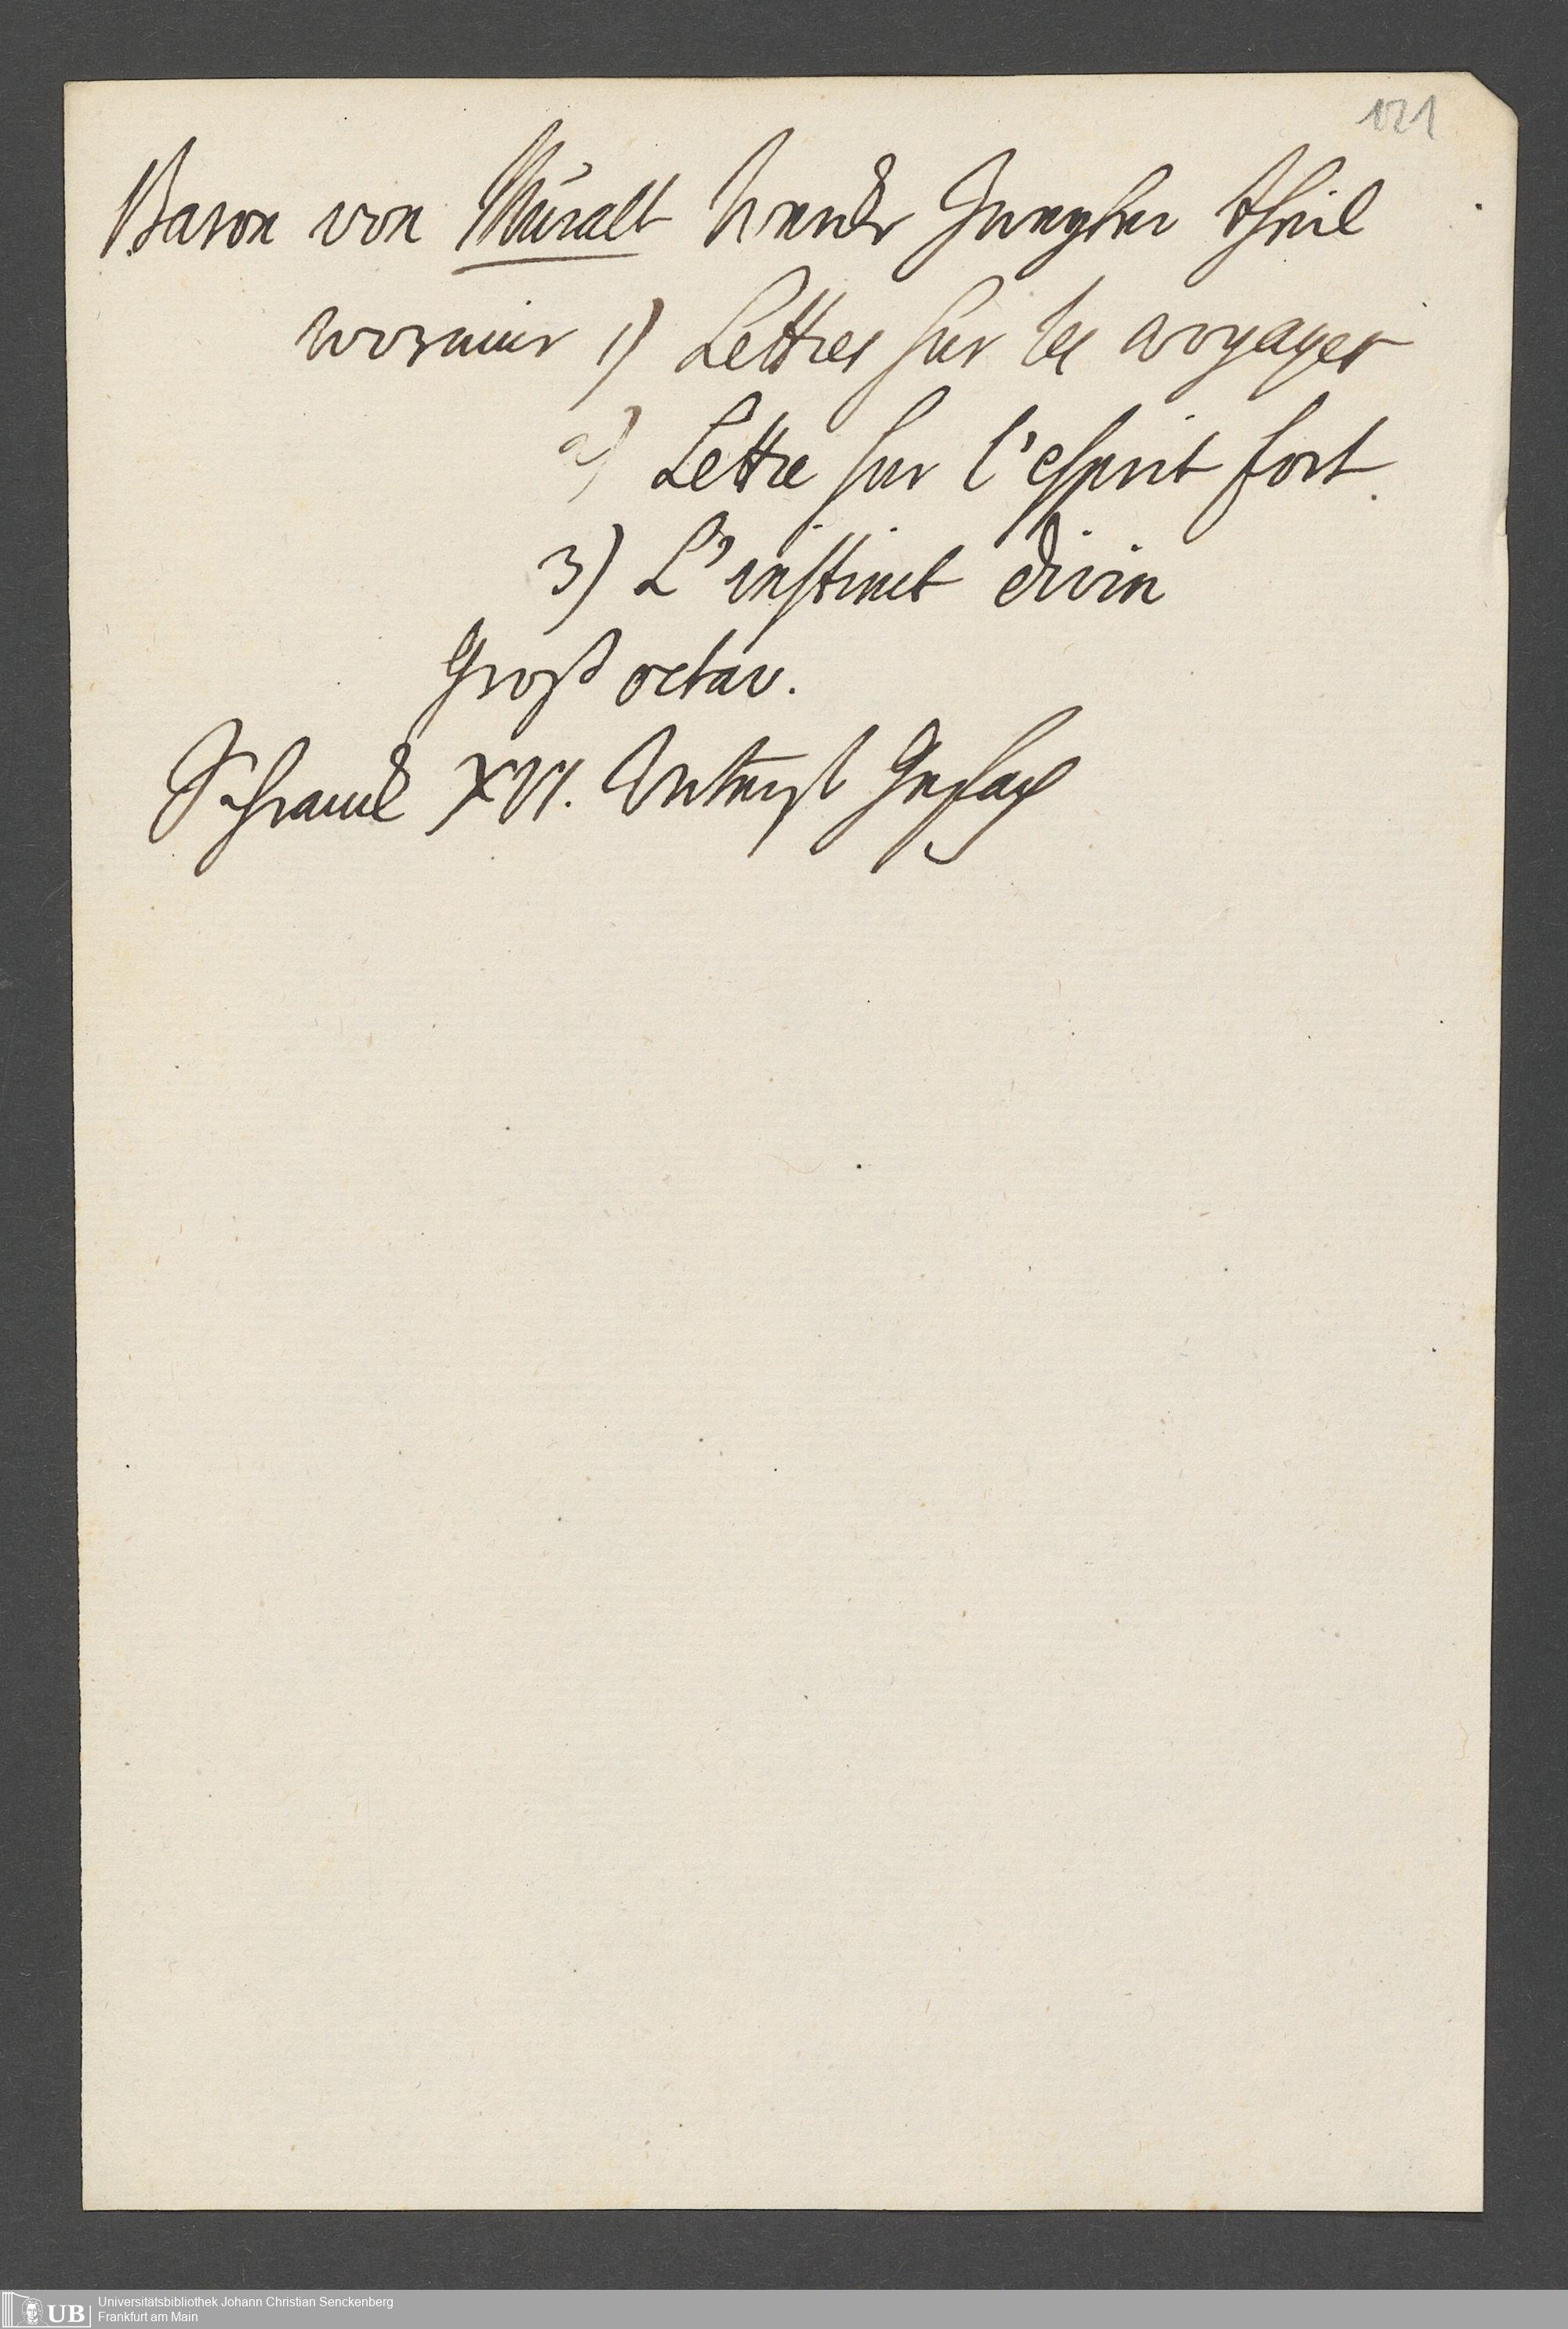 121
Baron von Muralt Werke Zweyter theil
worinnen 1) Lettres sur les voyages
2) Lettre sur l'esprit fort.
3) L'instinct divin
Groß octav.
Schranck XVI. Unterst Gefach
UB Universitätsbibliothek Johann Christian Senckenberg
Frankfurt am Main